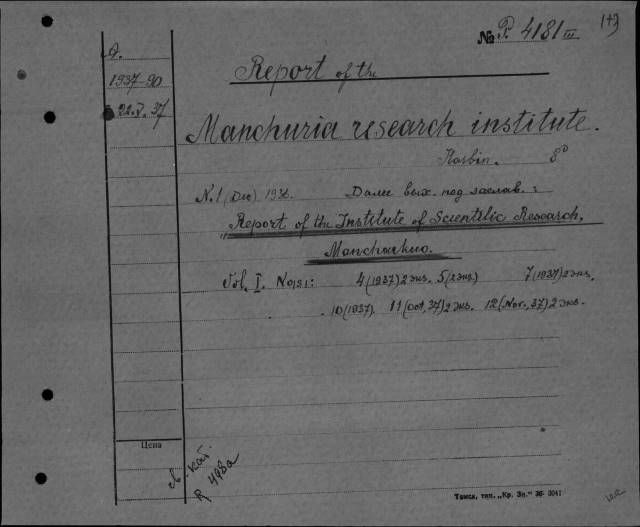 № P. 4181 III
1+3
A.
1937-90
22.V.37
Report of the
Manchuria research institute.
Harbin. 8°
N.1 (Dec) 1936. Далее вых. под заглав.:
"Report of the Institute of Scientific Research,
Manchoukuo.
Vol. I. No(s): 4 (1937) 2 экз. 5 (2 экз.) 7 (1937) 2 экз.
10 (1937). 11 (Oct, 37) 2 экз. 12 (Nov., 37) 2 экз.
Цена
св. кат.
P 498a
Томск, тип. „Кр. Зн." 36 3041